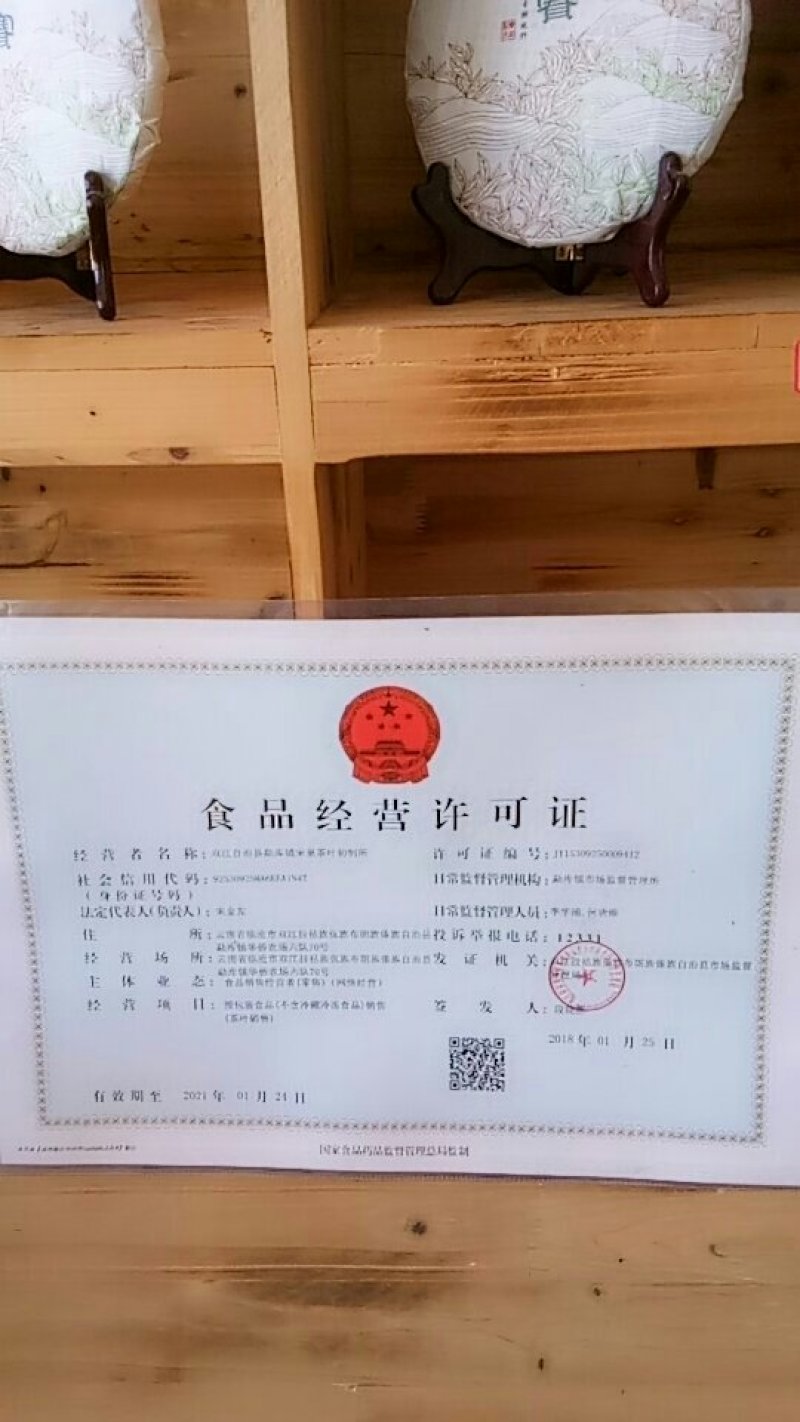 食品经营许可证
经营者名称：双江自治县勐库镇宋果茶叶初制所
许可证编号：JY15309250009412
社会信用代码：
(身份证号码)
日常监督管理机构：勐库镇市场监督管理所
法定代表人(负责人)：
日常监督管理人员：
住所：云南省临沧市双江拉祜族佤族布朗族傣族自治县
勐库镇华侨农场六队70号
投诉举报电话：12331
经营场所：云南省临沧市双江拉祜族佤族布朗族傣族自治县
勐库镇华侨农场六队70号
发证机关：双江拉祜族佤族布朗族傣族自治县市场监督
主体业态：食品销售经营者(零售)(网络经营)
经营项目：预包装食品(不含冷藏冷冻食品)销售
(茶叶销售)
签发人：
2018年01月25日
有效期至 2021年01月24日
国家食品药品监督管理总局监制